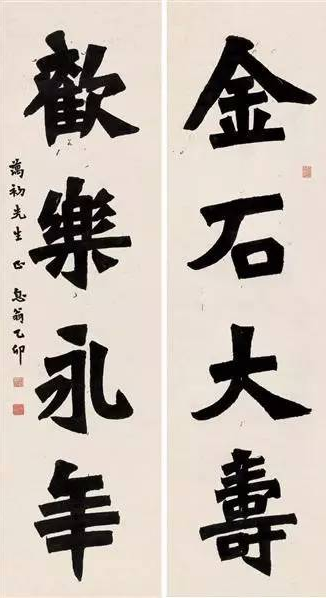 金石大壽
歡樂永年
萬初先生正 息翁乙卯